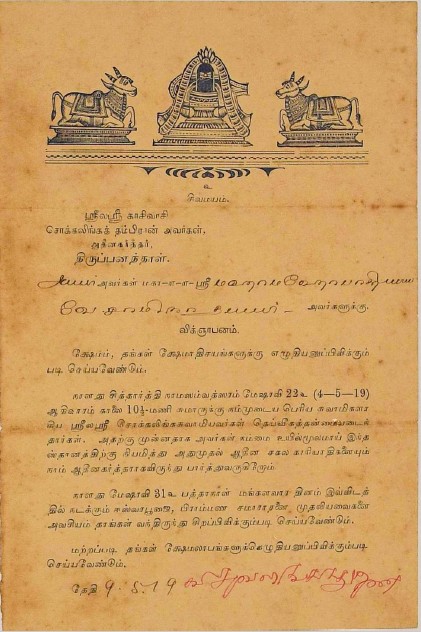 உ
சிவமயம்.
ஸ்ரீலஸ்ரீ காசிவாசி
சொக்கலிங்கத் தம்பிரான் அவர்கள்,
அதீனகர்த்தர்,
திருப்பனந்தாள்.
அவர்கள் மகா-ா-ா-ஸ்ரீ
அவர்களுக்கு.
விக்ஞாபனம்.
க்ஷேமம், தங்கள் க்ஷேமாதிசயங்களுக்கு எழுதியனுப்பிவிக்கும்
படி செய்யவேண்டும்.
நாளது சித்தார்த்தி நாமஸம்வத்ஸரம் மேஷரவி 22உ (4-5-19)
ஆதிவாரம் காலை 10½-மணி சுமாருக்கு நம்முடைய பெரிய சுவாமிகளா
கிய ஸ்ரீலஸ்ரீ சொக்கலிங்கசுவாமியவர்கள் தெய்வீகத்தன்மையடைந்
தார்கள். அதற்கு முன்னதாக அவர்கள் நம்மை உயில்மூலமாய் இந்த
ஸ்தானத்திற்கு நியமித்து அதுமுதல் ஆதீன சகல காரியாதிகளையும்
நாம் ஆதினகர்த்தராகவிருந்து பார்த்துவருகிறோம்.
நாளது மேஷரவி 31உ பத்தாநாள் மங்களவார தினம் இவ்விடத்
தில் நடக்கும் ஈஸ்வரபூஜை, பிராமண சமாராதனை முதலியவைகளை
அவசியம் தாங்கள் வந்திருந்து சிறப்பிவிக்கும்படி செய்யவேண்டும்.
மற்றப்படி தங்கள் க்ஷேமலாபங்களுக்கெழுதியனுப்பிவிக்கும்படி
செய்யவேண்டும்.
தேதி 9.5.19